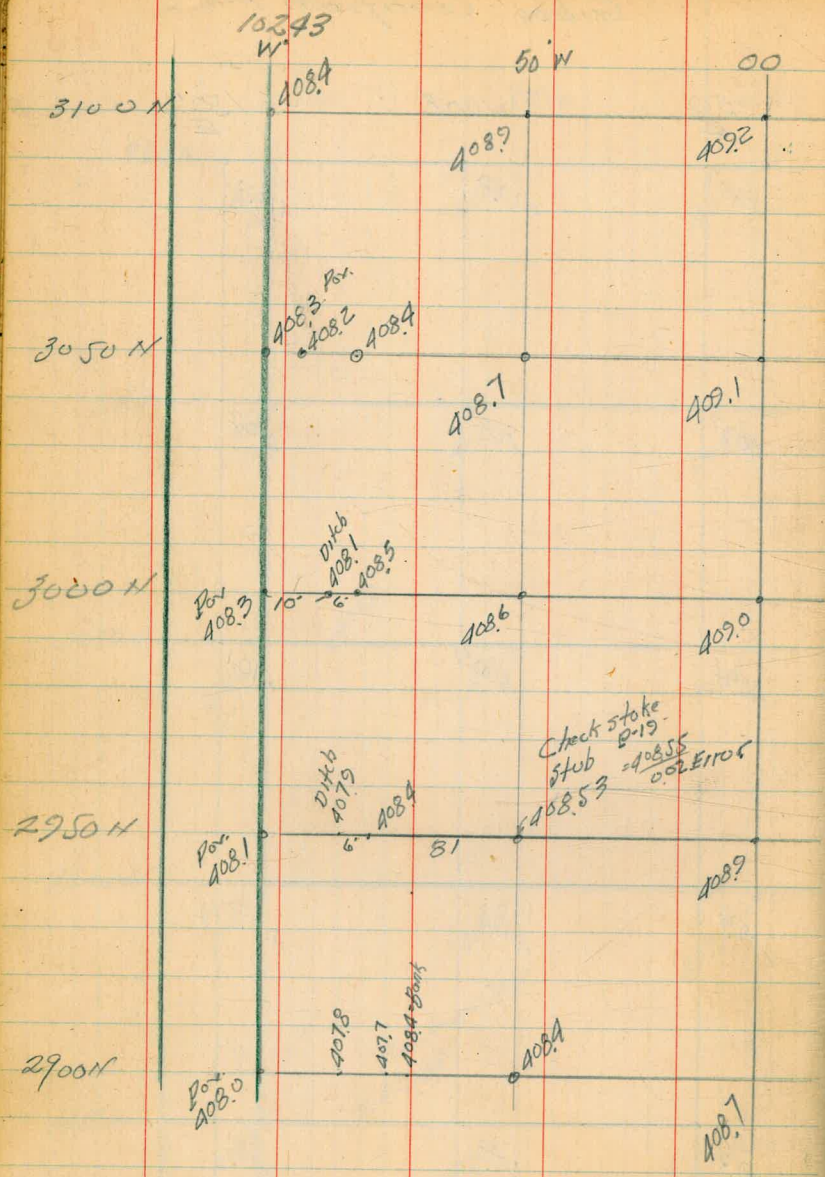 10243
W
50 W
00
3100 N
408.4
408.9
409.2
3050 N
408.3 Pav.
408.2
408.4
408.7
409.1
3000 N
Pav.
408.3
10'
Ditch
408.1
6'
408.5
408.6
409.0
Check stake
stub P-19
=408.55
0.02 Error
2950 N
Pav.
408.1
Ditch
407.9
6'
408.4
81
408.53
408.9
2900 N
Pav.
408.0
407.8
407.7
408.4 - Bank
408.4
408.7